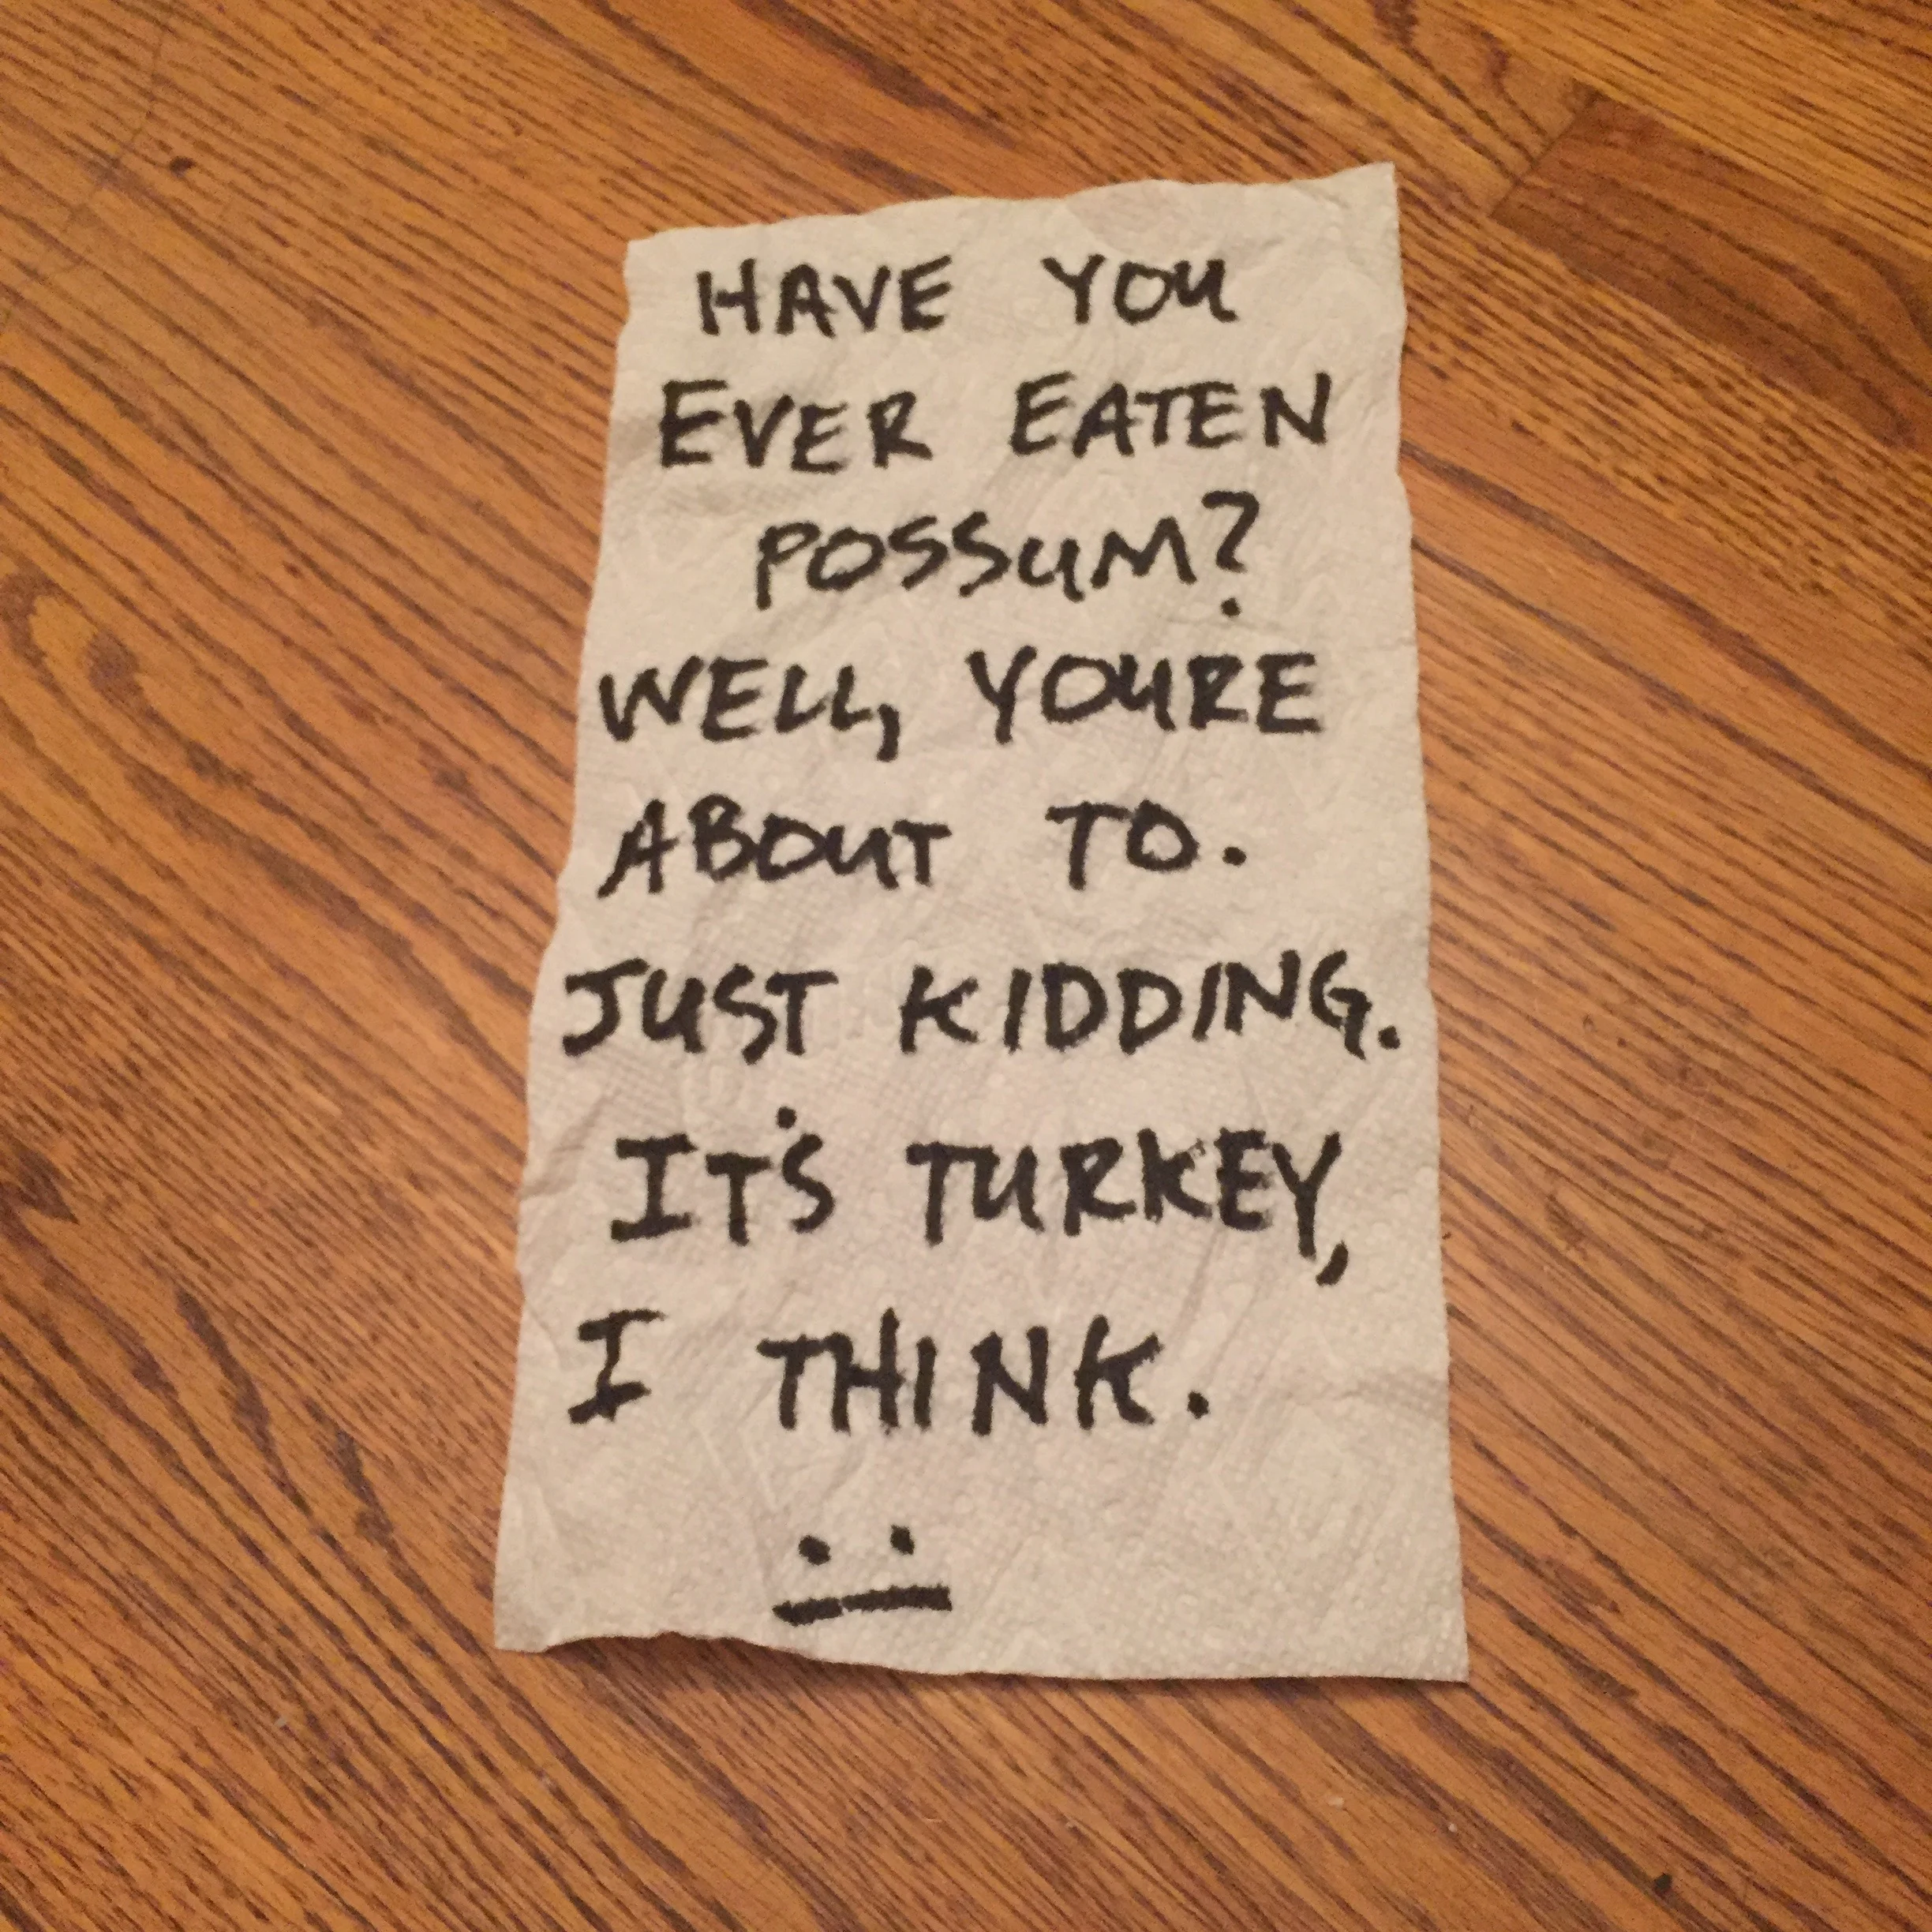 HAVE YOU
EVER EATEN
POSSUM?
WELL, YOURE
ABOUT TO.
JUST KIDDING.
IT'S TURKEY,
I THINK.